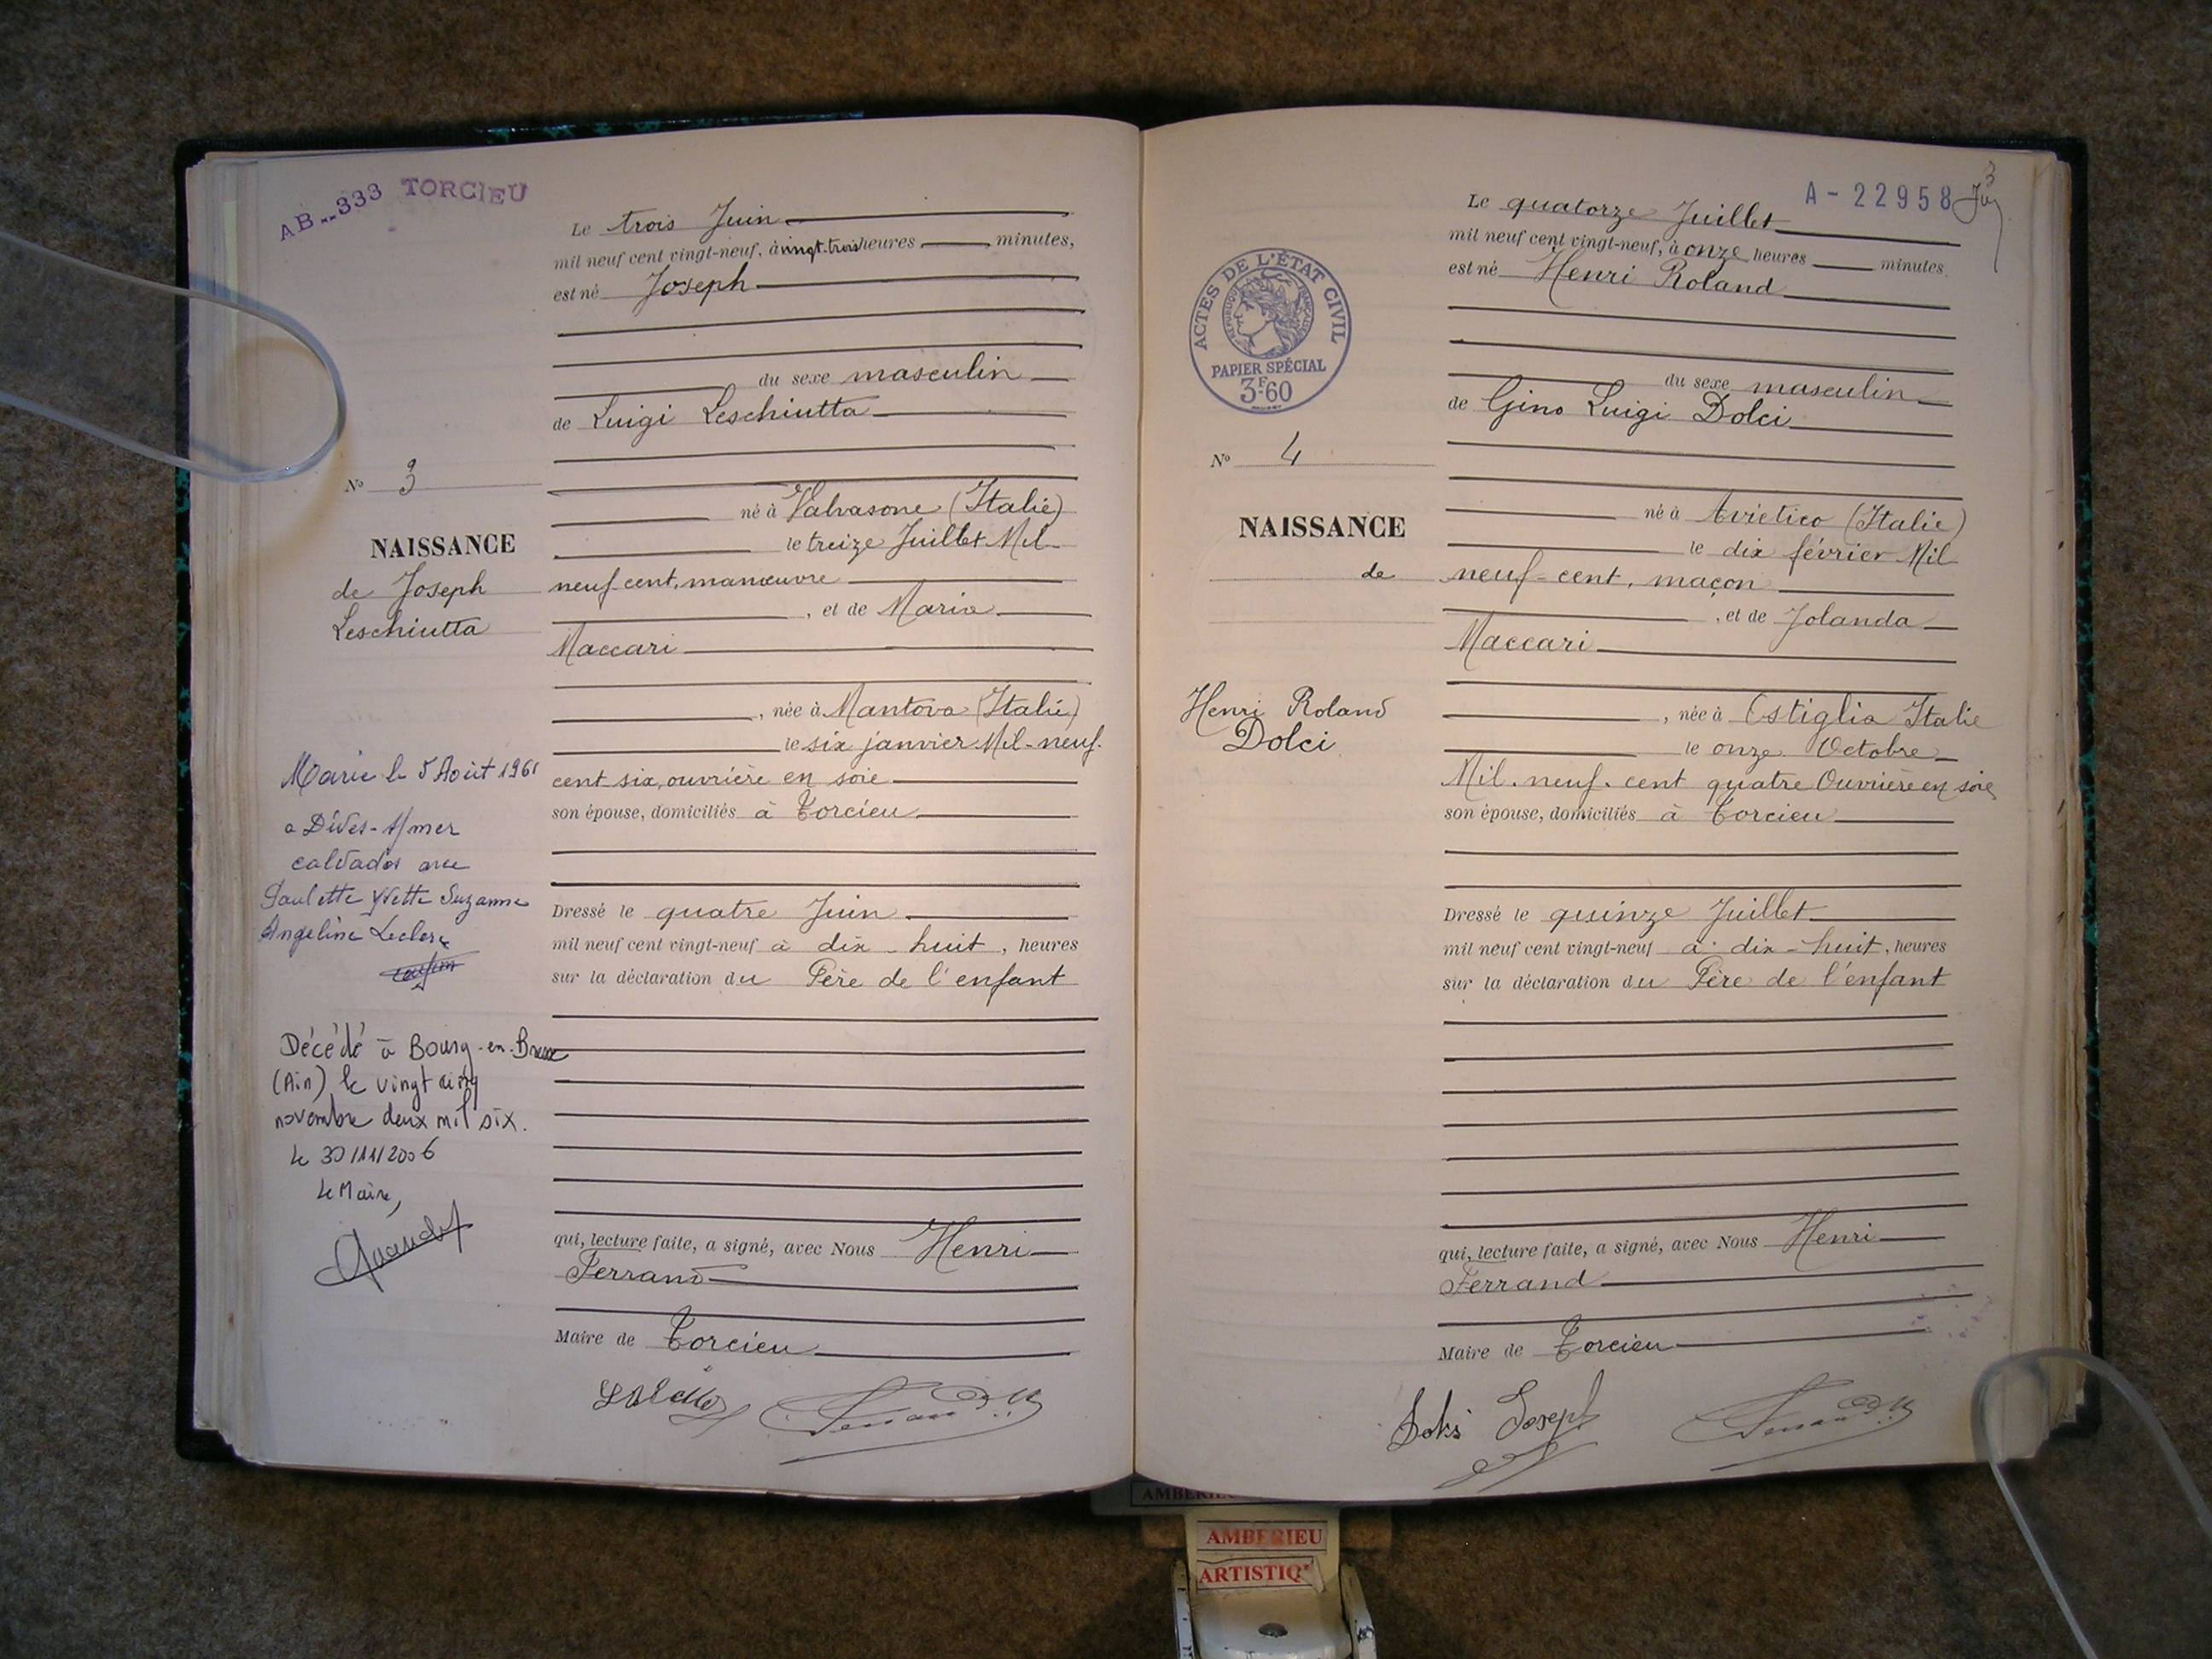 AB..333 TORCIEU
Le trois Juin
mil neuf cent vingt-neuf, à vingt-trois heures minutes,
est né Joseph
du sexe masculin
de Luigi Leschiutta
né à Valvasone (Italie)
le treize Juillet Mil
neuf-cent, manœuvre
, et de Maria
Maccari
, née à Mantova (Italie)
le six janvier Mil-neuf-
cent six, ouvrière en soie
son épouse, domiciliés à Torcieu
Dressé le quatre Juin
mil neuf cent vingt-neuf à dix-huit, heures
sur la déclaration du Père de l'enfant
qui, lecture faite, a signé, avec Nous Henri
Ferrand
Maire de Torcieu
N° 3
NAISSANCE
de Joseph
Leschiutta
Marié le 5 Août 1961
a Dives-s/mer
calvados avec
Paulette Yvette Suzanne
Angeline Leclerc
Décédé à Bourg-en-Bresse
(Ain) le vingt cinq
novembre deux mil six.
Le 30/11/2006
Le Maire,
A-22958
3
Le quatorze Juillet
mil neuf cent vingt-neuf, à onze heures minutes,
est né Henri Roland
du sexe masculin
de Gino Luigi Dolci
né à Avietico (Italie)
le dix février Mil
neuf-cent, maçon
, et de Jolanda
Maccari
, née à Ostiglia Italie
le onze Octobre
Mil-neuf-cent quatre Ouvrière en soie
son épouse, domiciliés à Torcieu
Dressé le quinze Juillet
mil neuf cent vingt-neuf à dix-huit, heures
sur la déclaration du Père de l'enfant
qui, lecture faite, a signé, avec Nous Henri
Ferrand
Maire de Torcieu
ACTES DE L'ÉTAT CIVIL
RÉPUBLIQUE FRANÇAISE
PAPIER SPÉCIAL
3F60
N° 4
NAISSANCE
de
Henri Roland
Dolci
Joseph
AMBERIEU
ARTISTIQ